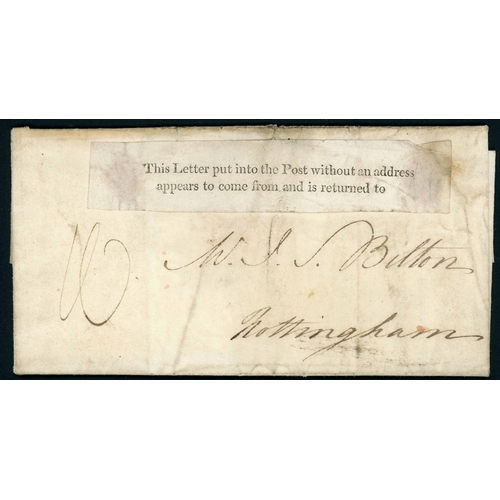 This Letter put into the Post without an address
appears to come from and is returned to
Mr. J. S. Bilton
Nottingham